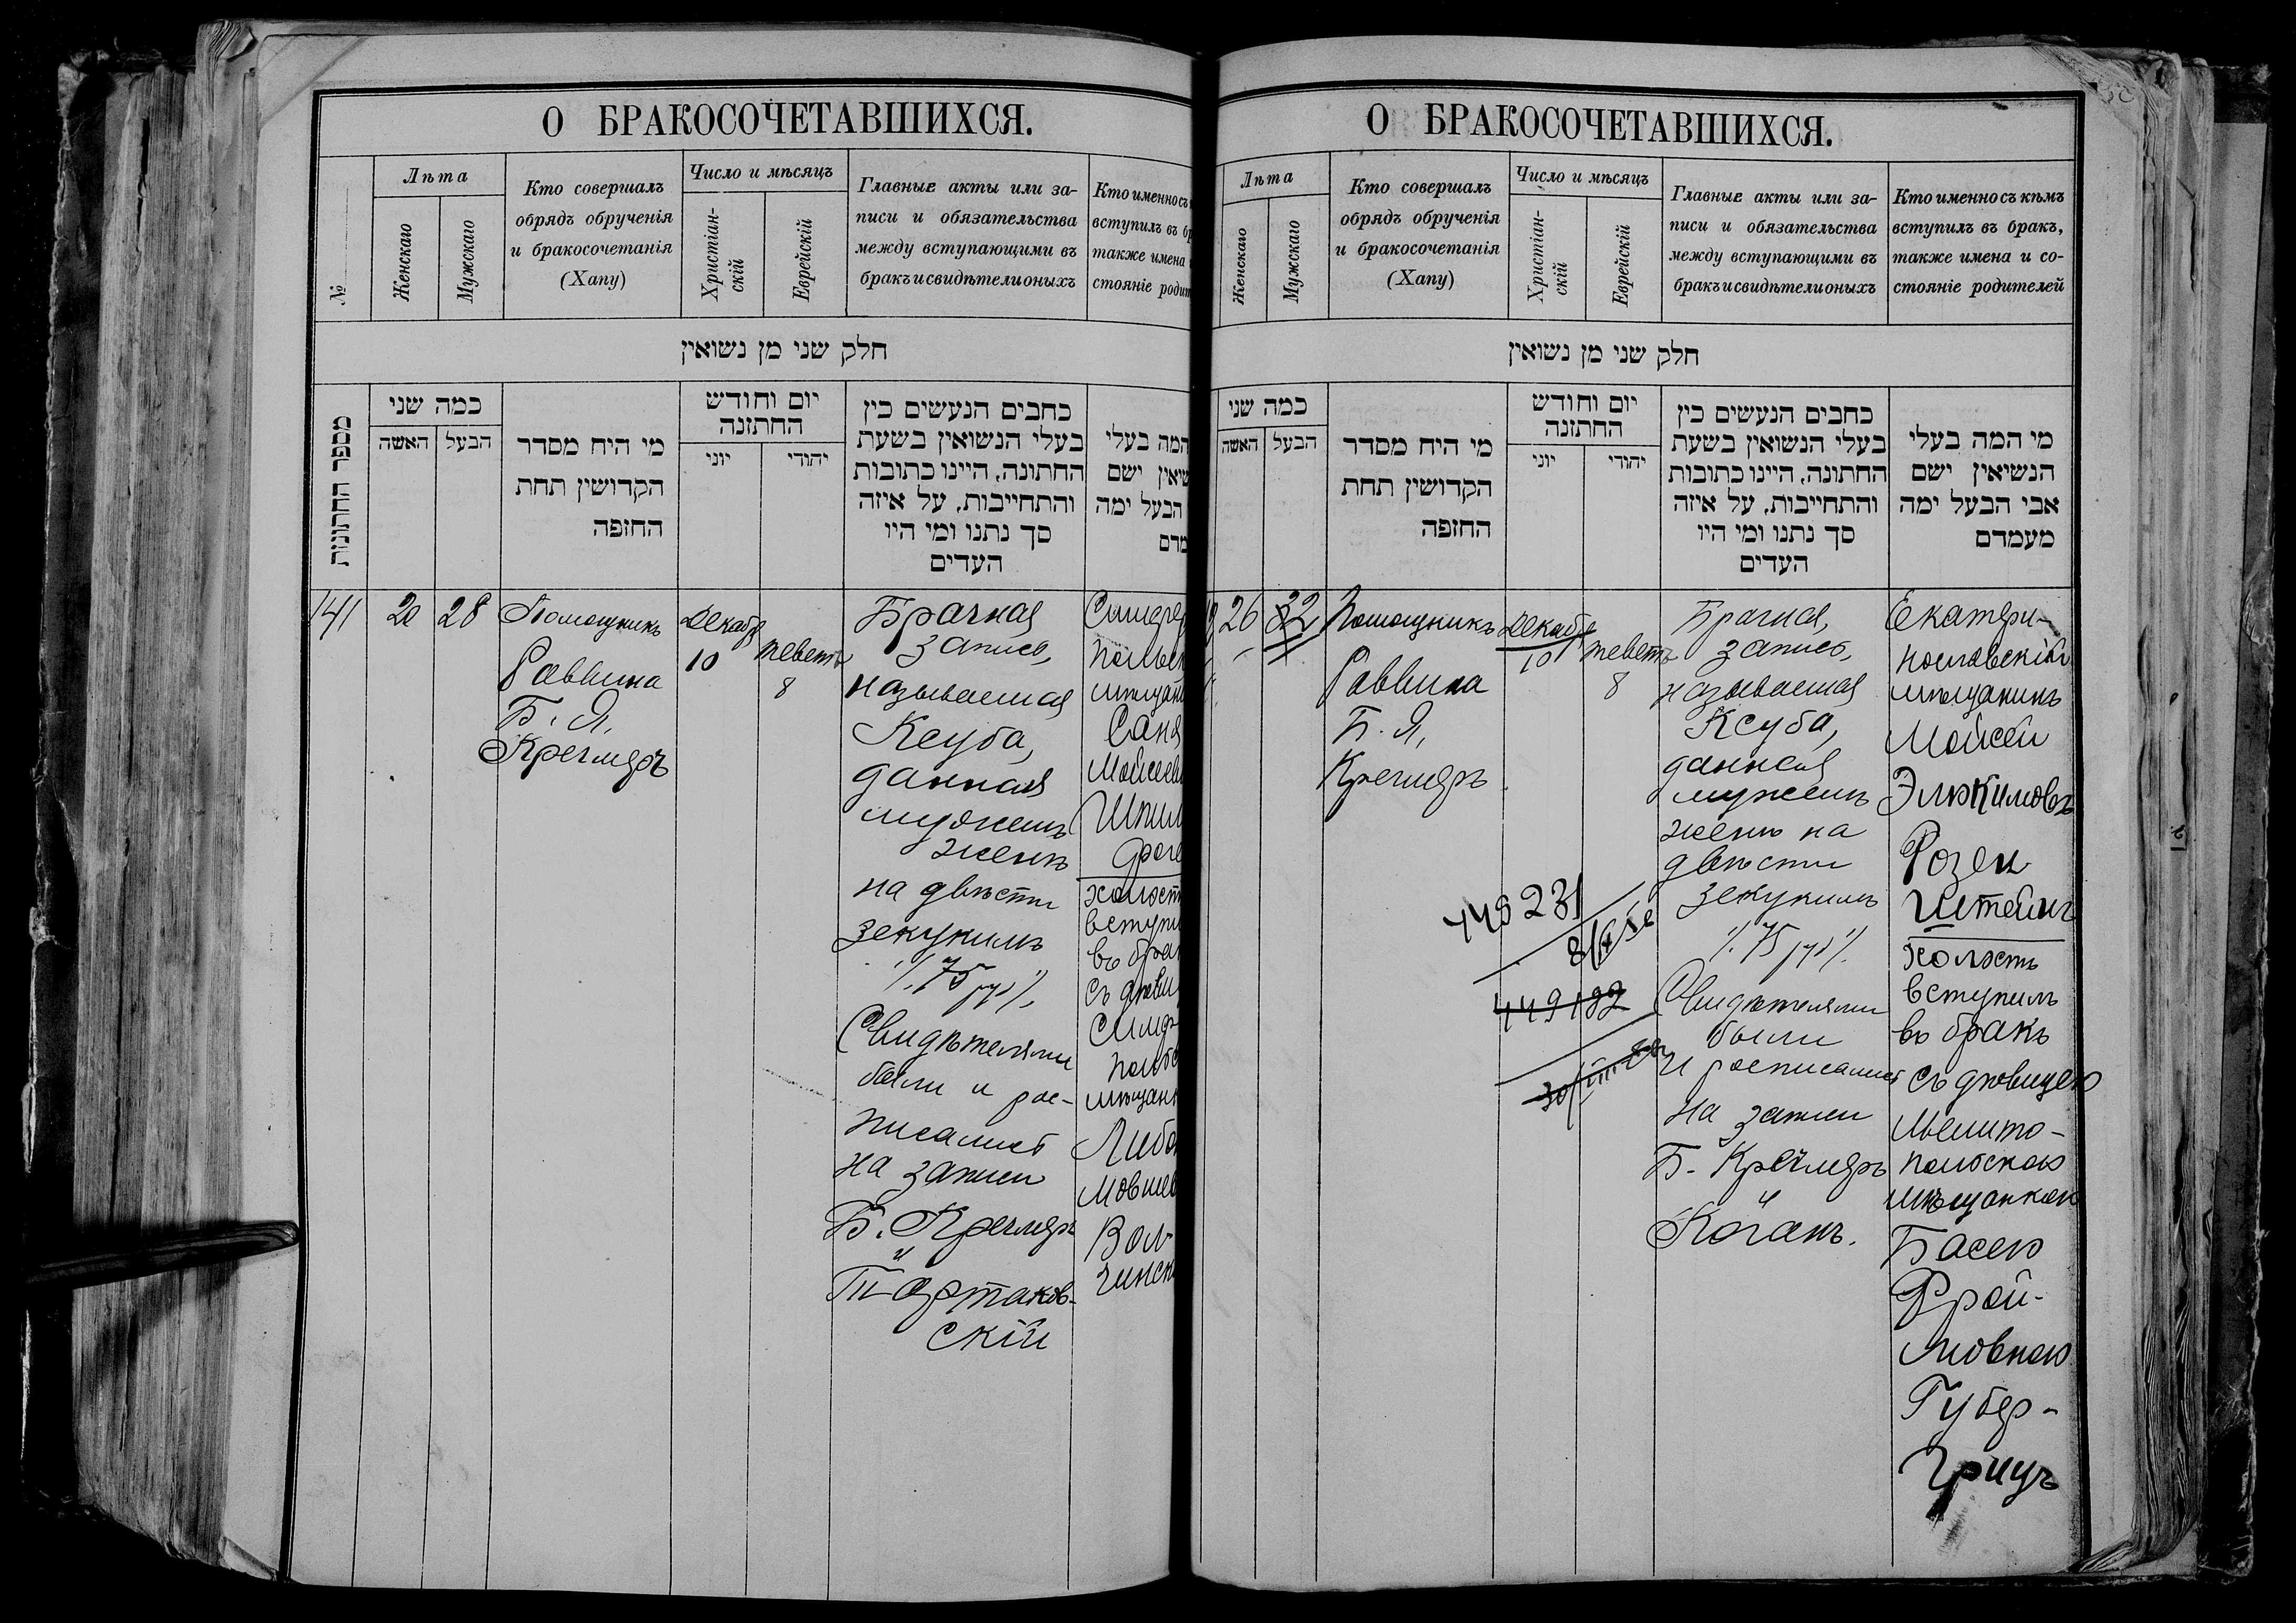 О БРАКОСОЧЕТАВШИХСЯ.
№
Лѣта
Женскаго
Мужскаго
Кто совершалъ
обрядъ обрученія
и бракосочетанія
(Хапу)
Число и мѣсяцъ
Христіан-
скій
Еврейскій
Главные акты или за-
писи и обязательства
между вступающими въ
бракъ и свидѣтели оныхъ
Кто именно съ
вступилъ въ
также имена
стояніе
חלק שני מן נשואין
מספר החתונות
כמה שני
האשה
הבעל
מי היח מסדר
הקדושין תחת
החזפה
יום וחודש
החתזנה
יוני
יהודי
כחבים הנעשים כין
בעלי הנשואין בשעת
החתונה, היינו כתובות
והתחייבות, על איזה
סך נתנו ומי היו
העדים
המה בעלי
ישם
הבעל ימה
141
20
28
Помощникъ
Раввина
Б. Я.
Кречмеръ
Декабр
10
теветъ
8
Брачная
запись,
называемая
Ксуба,
данная
мужемъ
женѣ
на двѣсти
зекукимъ
./. 75 р ./.
Свидѣтелями
были и рос-
писались
на записи
Б. Кречмеръ
и
Тартаков-
скій
Симфер
польск
мѣщан
Саня
Моисеев
Шпил
холост
вступи
въ бра
съ дѣви
Симф
польс
мѣщанк
Либо
Мовшев
Вол-
чинск
О БРАКОСОЧЕТАВШИХСЯ.
Лѣта
Женскаго
Мужскаго
Кто совершалъ
обрядъ обрученія
и бракосочетанія
(Хапу)
Число и мѣсяцъ
Христіан-
скій
Еврейскій
Главные акты или за-
писи и обязательства
между вступающими въ
бракъ и свидѣтели оныхъ
Кто именно съ кѣмъ
вступилъ въ бракъ,
также имена и со-
стояніе родителей
חלק שני מן נשואין
כמה שני
האשה
הבעל
מי היח מסדר
הקדושין תחת
החזפה
יום וחודש
החתזנה
יוני
יהודי
כחבים הנעשים כין
בעלי הנשואין בשעת
החתונה, היינו כתובות
והתחייבות, על איזה
סך נתנו ומי היו
העדים
מי המה בעלי
הנשיאין ישם
אבי הבעל ימה
מעמדם
26
32
Помощникъ
Раввина
Б. Я,
Кречмеръ
Декабр
10
теветъ
8
449231
449192
Брачная,
запись,
называемая
Ксуба,
данная
мужемъ
женѣ на
двѣсти
зекукимъ
./. 75 р ./.
Свидѣтелями
были
и росписались
на записи
Б. Кречмеръ
и
Коганъ.
Екатери-
нославскій
мѣщанинъ
Мойсей
Элюкимовъ
Розен
Штейнъ
холостъ
вступилъ
въ бракъ
съ дѣвицею
Мелито-
польскою
мѣщанкою
Басею
Фрой-
мовною
Губер-
Грицъ